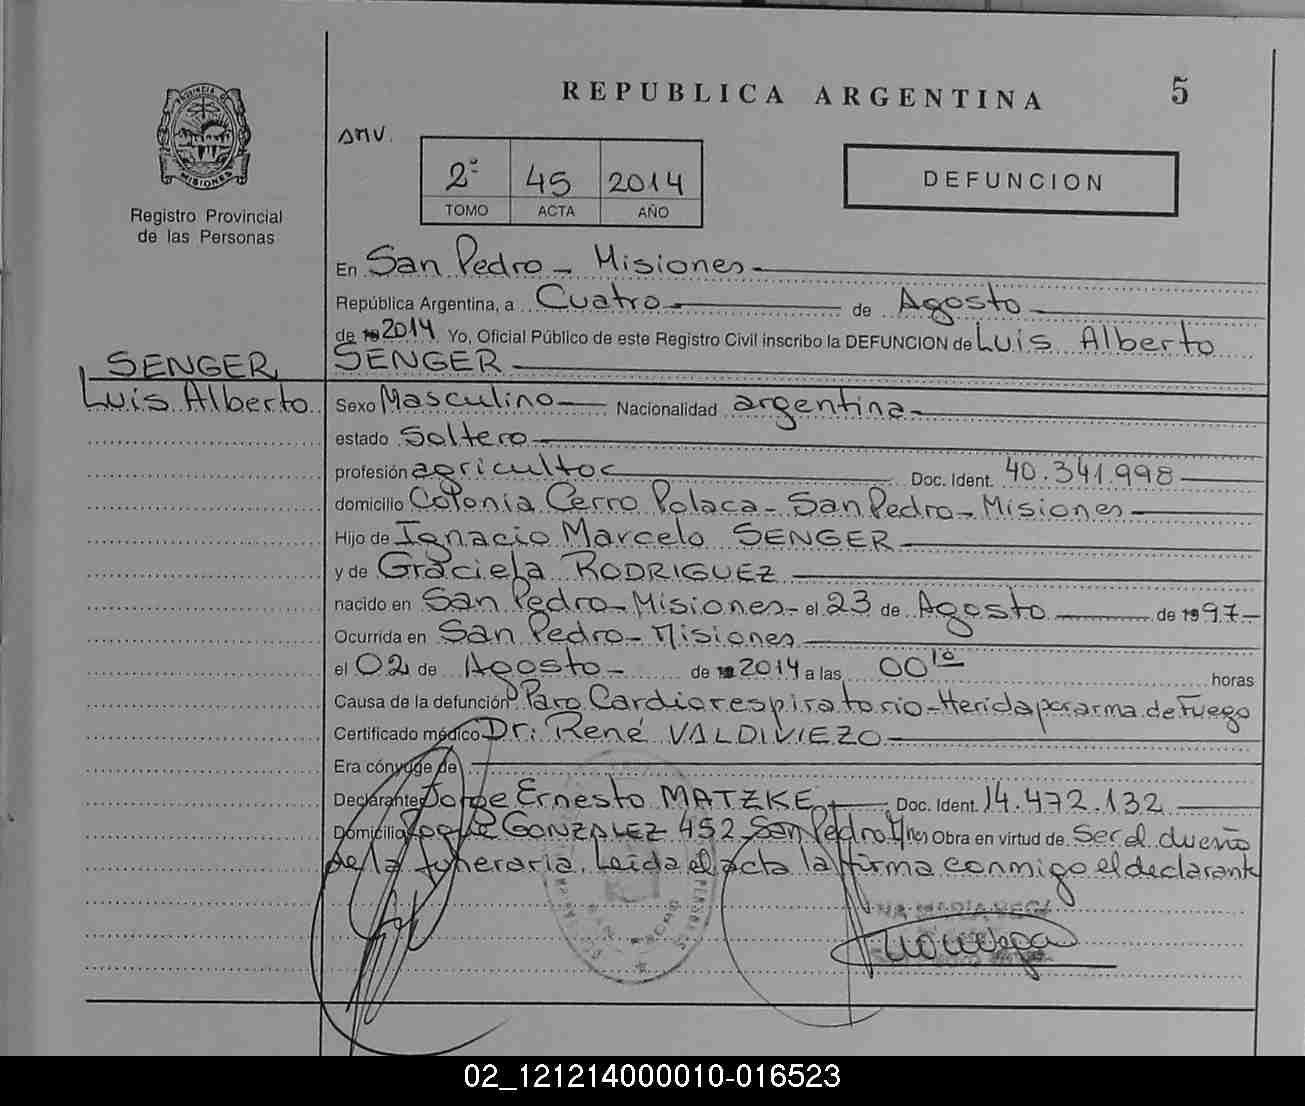 REPUBLICA ARGENTINA
5
PROVINCIA DE MISIONES
Registro Provincial
de las Personas
AMV.
2º 45 2014
TOMO ACTA AÑO
DEFUNCION
En San Pedro - Misiones
República Argentina, a Cuatro de Agosto
de 19 2014 Yo, Oficial Público de este Registro Civil inscribo la DEFUNCION de Luis Alberto
SENGER
SENGER
Luis Alberto
Sexo Masculino Nacionalidad argentina
estado Soltero
profesión agricultor Doc. Ident. 40.341.998
domicilio Colonia Cerro Polaca - San Pedro - Misiones
Hijo de Ignacio Marcelo SENGER
y de Graciela RODRIGUEZ
nacido en San Pedro - Misiones - el 23 de Agosto de 1997
Ocurrida en San Pedro - Misiones
el 02 de Agosto de 19 2014 a las 00 10 horas
Causa de la defunción Paro Cardiorespiratorio - Herida por arma de Fuego
Certificado médico Dr: René VALDIVIEZO
Era cónyuge de
Declarante Jorge Ernesto MATZKE Doc. Ident. 14.472.132
Domicilio Roque GONZALEZ 452 San Pedro Mnes Obra en virtud de Ser el dueño
de la funeraria. Leida el acta la firma conmigo el declarante
02_121214000010-016523